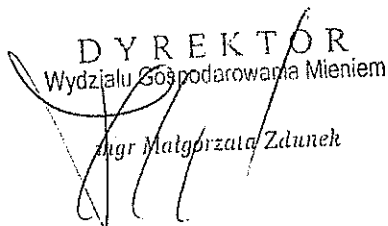 DYREKTOR
Wydziału Gospodarowania Mieniem
mgr Małgorzata Zdunek